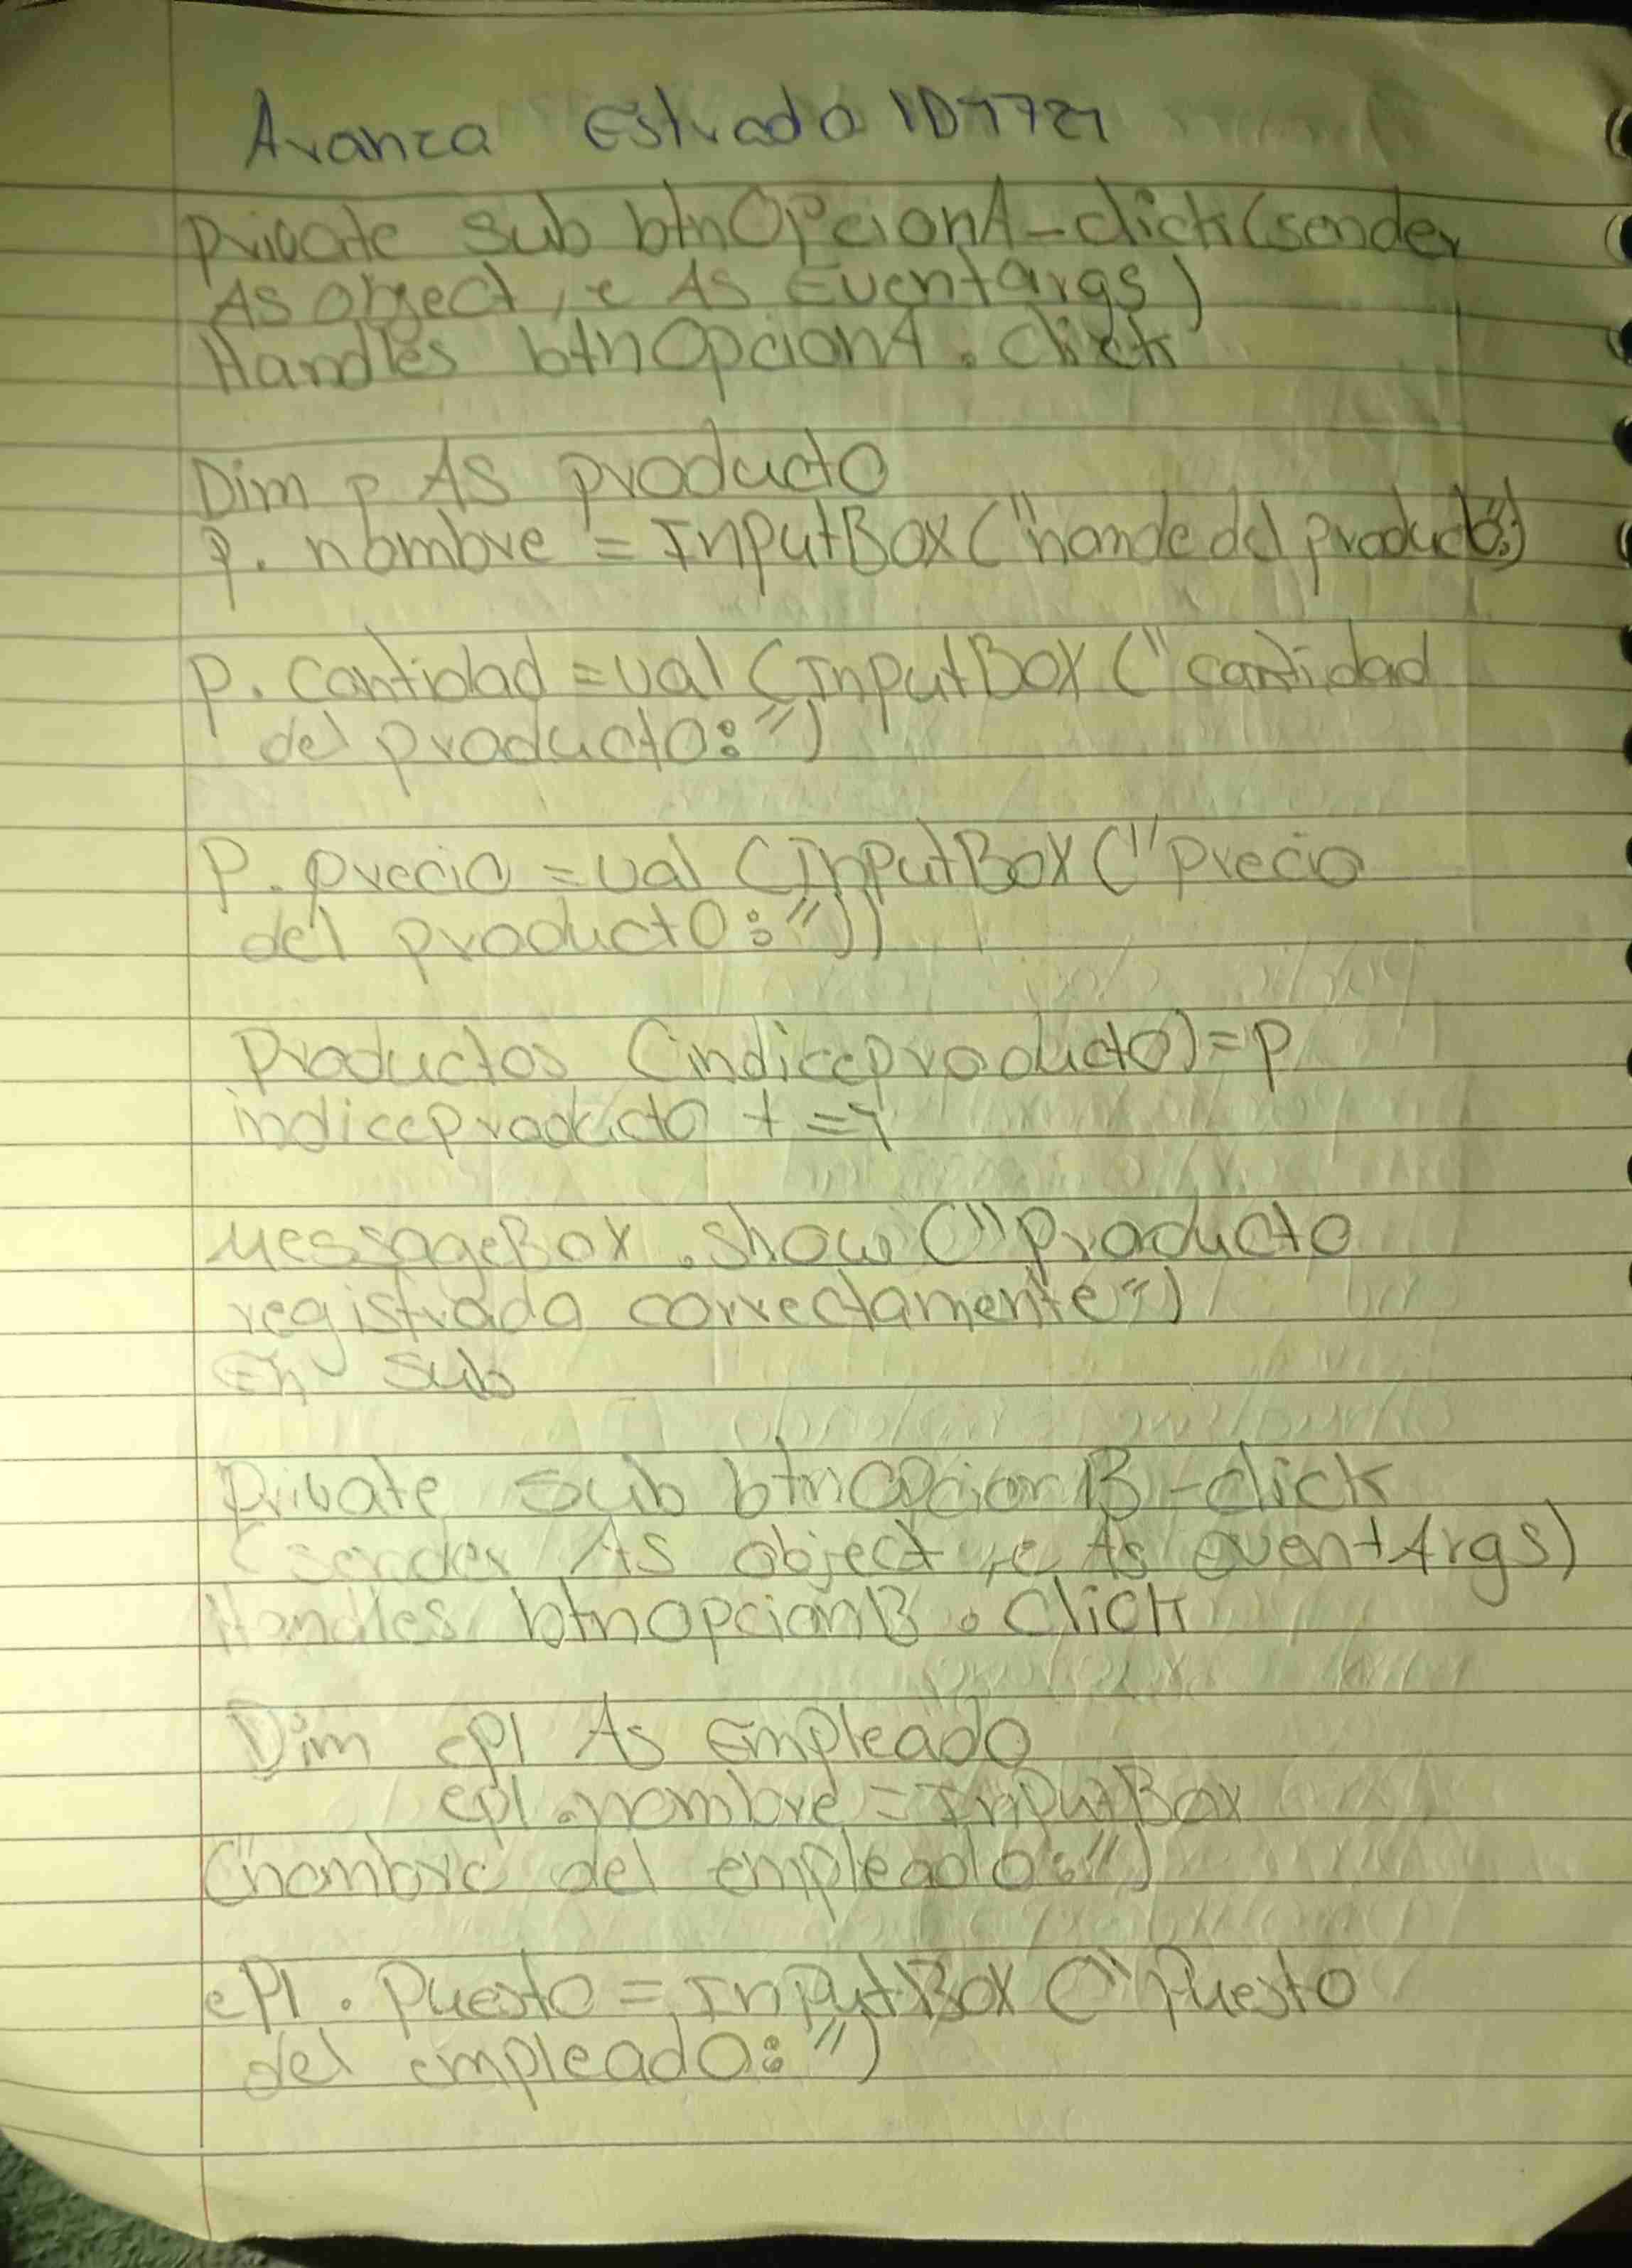 Avanza Estrada ID1721
private sub btnOpcionA-click(sender
As object, e As Eventargs)
Handles btnOpcionA.click
Dim p As producto
p. nombre = InputBox("nomde del producto:")
p. cantidad = val (InputBox ("cantidad
del producto:")
P. precio = val (InputBox ("precio
del producto:"))
Productos (indiceproducto) = p
indiceproducto + = 1
MessageBox .show ("producto
registrado correctamente")
En sub
private sub btnOpcionB-click
(sender As object, e As eventArgs)
Handles btnopcionB.Click
Dim epl As Empleado
epl.nombre = InputBox
("nombre del empleado:")
epl. Puesto = InputBox ("Puesto
del empleado:")